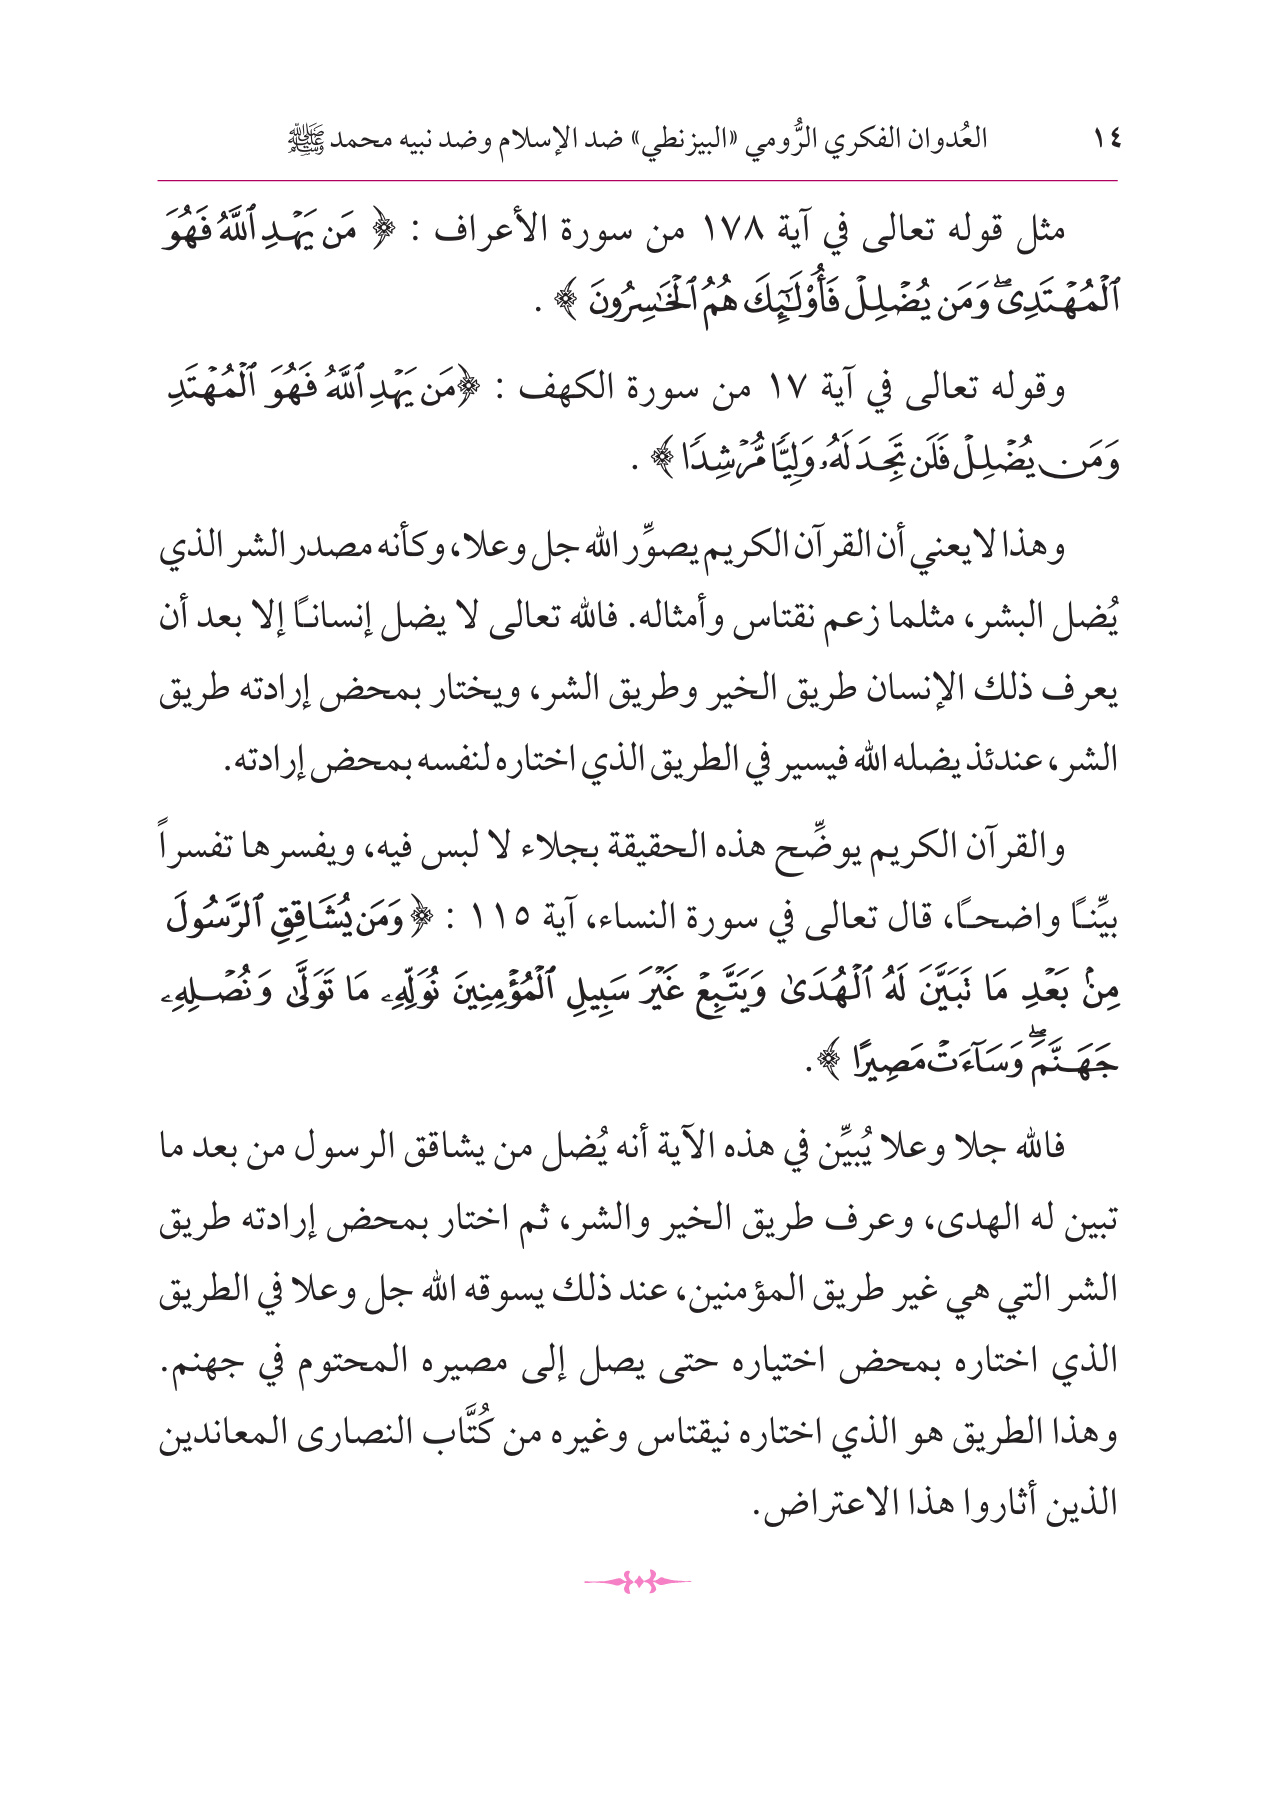 ١٤ العُدوان الفكري الرُّومي «البيزنطي» ضد الإسلام وضد نبيه محمد ﷺ
مثل قوله تعالى في آية ١٧٨ من سورة الأعراف : ﴿ مَن يَهۡدِ ٱللَّهُ فَهُوَ
ٱلۡمُهۡتَدِىۖ وَمَن يُضۡلِلۡ فَأُوْلَـٰٓئِكَ هُمُ ٱلۡخَـٰسِرُونَ ﴾ .
وقوله تعالى في آية ١٧ من سورة الكهف : ﴿مَن يَهۡدِ ٱللَّهُ فَهُوَ ٱلۡمُهۡتَدِ
وَمَن يُضۡلِلۡ فَلَن تَجِدَ لَهُۥ وَلِيًّا مُّرۡشِدًا ﴾ .
وهذا لا يعني أن القرآن الكريم يصوِّر الله جل وعلا، وكأنه مصدر الشر الذي
يُضل البشر، مثلما زعم نقتاس وأمثاله. فالله تعالى لا يضل إنسانًا إلا بعد أن
يعرف ذلك الإنسان طريق الخير وطريق الشر، ويختار بمحض إرادته طريق
الشر، عندئذ يضله الله فيسير في الطريق الذي اختاره لنفسه بمحض إرادته.
والقرآن الكريم يوضِّح هذه الحقيقة بجلاء لا لبس فيه، ويفسرها تفسراً
بيِّنًا واضحًا، قال تعالى في سورة النساء، آية ١١٥ : ﴿وَمَن يُشَاقِقِ ٱلرَّسُولَ
مِنۢ بَعۡدِ مَا تَبَيَّنَ لَهُ ٱلۡهُدَىٰ وَيَتَّبِعۡ غَيۡرَ سَبِيلِ ٱلۡمُؤۡمِنِينَ نُوَلِّهِۦ مَا تَوَلَّىٰ وَنُصۡلِهِۦ
جَهَنَّمَۖ وَسَآءَتۡ مَصِيرًا ﴾.
فالله جلا وعلا يُبيِّن في هذه الآية أنه يُضل من يشاقق الرسول من بعد ما
تبين له الهدى، وعرف طريق الخير والشر، ثم اختار بمحض إرادته طريق
الشر التي هي غير طريق المؤمنين، عند ذلك يسوقه الله جل وعلا في الطريق
الذي اختاره بمحض اختياره حتى يصل إلى مصيره المحتوم في جهنم.
وهذا الطريق هو الذي اختاره نيقتاس وغيره من كُتَّاب النصارى المعاندين
الذين أثاروا هذا الاعتراض.